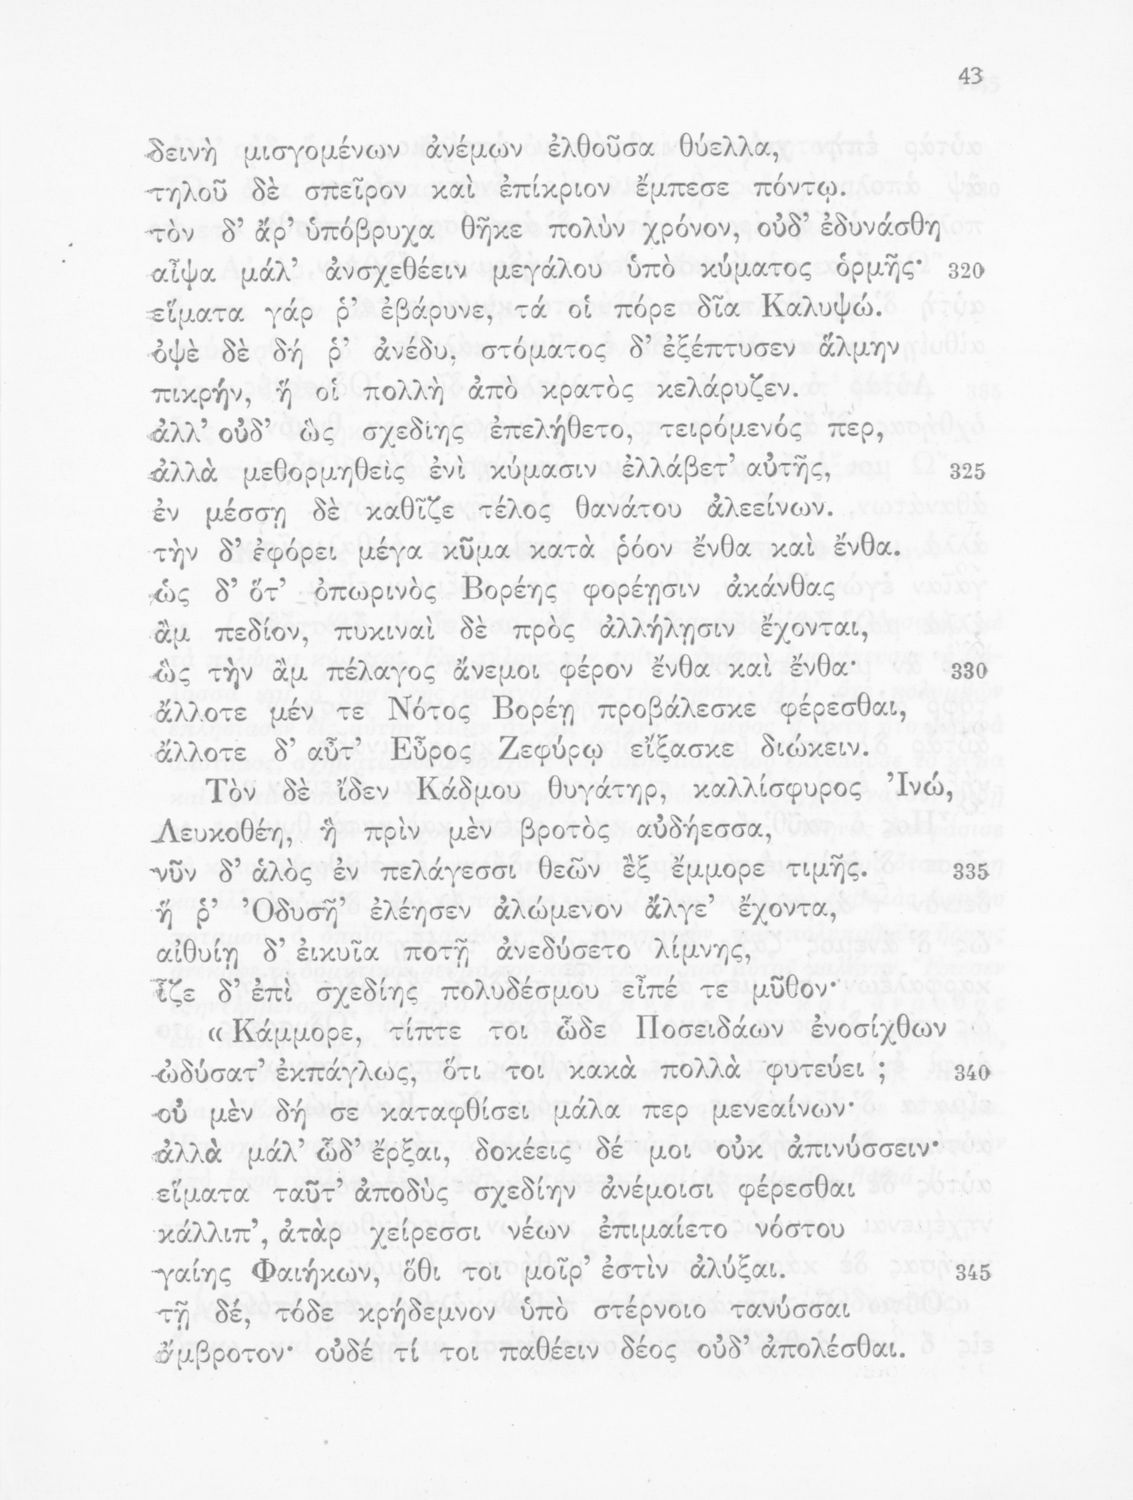 43
δεινὴ μισγομένων ἀνέμων ἐλθοῦσα θύελλα,
τηλοῦ δὲ σπεῖρον καὶ ἐπίκριον ἔμπεσε πόντῳ.
τὸν δ’ ἄρ’ ὑπόβρυχα θῆκε πολὺν χρόνον, οὐδ’ ἐδυνάσθη
αἶψα μάλ’ ἀνσχεθέειν μεγάλου ὑπὸ κύματος ὁρμῆς· 320
εἵματα γάρ ῥ’ ἐβάρυνε, τά οἱ πόρε δῖα Καλυψώ.
ὀψὲ δὲ δή ῥ’ ἀνέδυ, στόματος δ’ ἐξέπτυσεν ἅλμην
πικρήν, ἥ οἱ πολλὴ ἀπὸ κρατὸς κελάρυζεν.
ἀλλ’ οὐδ’ ὣς σχεδίης ἐπελήθετο, τειρόμενός περ,
ἀλλὰ μεθορμηθεὶς ἐνὶ κύμασιν ἐλλάβετ’ αὐτῆς, 325
ἐν μέσσῃ δὲ καθῖζε τέλος θανάτου ἀλεείνων.
τὴν δ’ ἐφόρει μέγα κῦμα κατὰ ῥόον ἔνθα καὶ ἔνθα.
ὡς δ’ ὅτ’ ὀπωρινὸς Βορέης φορέῃσιν ἀκάνθας
ἂμ πεδίον, πυκιναὶ δὲ πρὸς ἀλλήλῃσιν ἔχονται,
ὣς τὴν ἂμ πέλαγος ἄνεμοι φέρον ἔνθα καὶ ἔνθα· 330
ἄλλοτε μέν τε Νότος Βορέῃ προβάλεσκε φέρεσθαι,
ἄλλοτε δ’ αὖτ’ Εὖρος Ζεφύρῳ εἴξασκε διώκειν.
Τὸν δὲ ἴδεν Κάδμου θυγάτηρ, καλλίσφυρος Ἰνώ,
Λευκοθέη, ἣ πρὶν μὲν βροτὸς αὐδήεσσα,
νῦν δ’ ἁλὸς ἐν πελάγεσσι θεῶν ἒξ ἔμμορε τιμῆς. 335
ἥ ῥ’ Ὀδυσῆ’ ἐλέησεν ἀλώμενον ἄλγε’ ἔχοντα,
αἰθυίῃ δ’ ἐικυῖα ποτῇ ἀνεδύσετο λίμνης,
ἷζε δ’ ἐπὶ σχεδίης πολυδέσμου εἶπέ τε μῦθον·
«Κάμμορε, τίπτε τοι ὧδε Ποσειδάων ἐνοσίχθων
ὠδύσατ’ ἐκπάγλως, ὅτι τοι κακὰ πολλὰ φυτεύει ; 340
οὐ μὲν δή σε καταφθίσει μάλα περ μενεαίνων·
ἀλλὰ μάλ’ ὧδ’ ἔρξαι, δοκέεις δέ μοι οὐκ ἀπινύσσειν·
εἵματα ταῦτ’ ἀποδὺς σχεδίην ἀνέμοισι φέρεσθαι
κάλλιπ’, ἀτὰρ χείρεσσι νέων ἐπιμαίετο νόστου
γαίης Φαιήκων, ὅθι τοι μοῖρ’ ἐστὶν ἀλύξαι. 345
τῇ δέ, τόδε κρήδεμνον ὑπὸ στέρνοιο τανύσσαι
ἄμβροτον· οὐδέ τί τοι παθέειν δέος οὐδ’ ἀπολέσθαι.